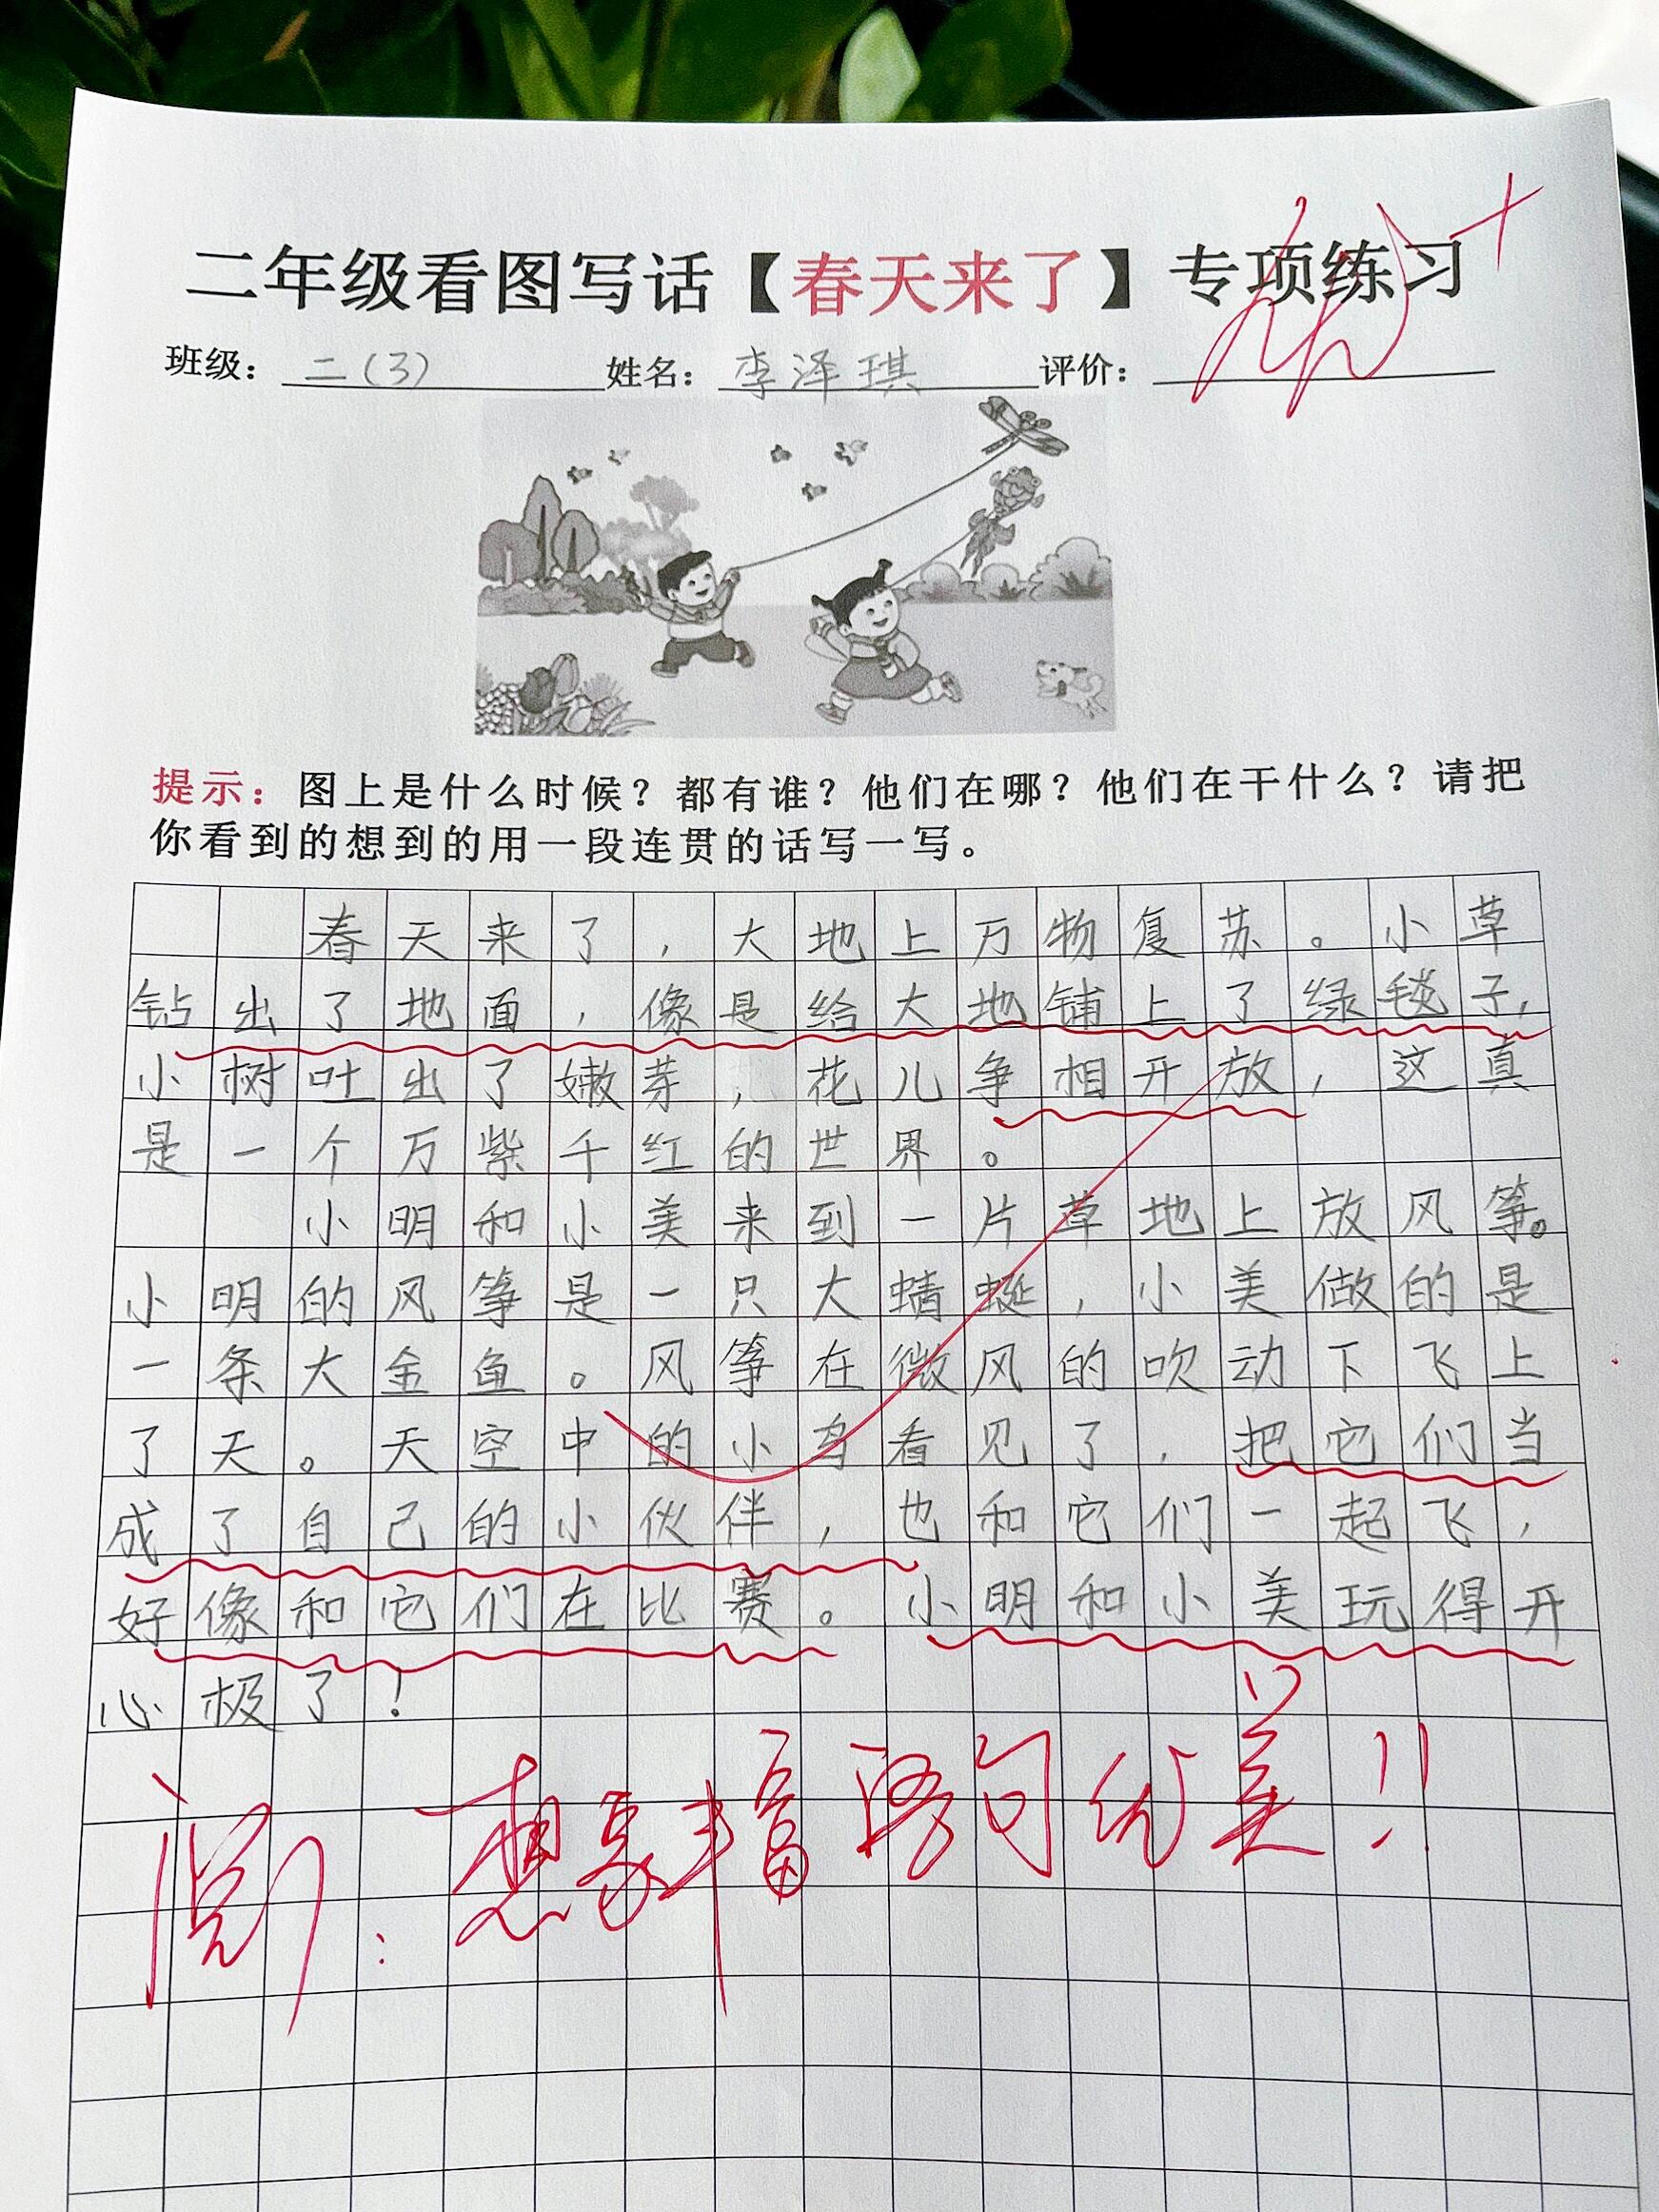 二年级看图写话【春天来了】专项练习
班级：二(3) 姓名：李泽琪 评价：
提示：图上是什么时候？都有谁？他们在哪？他们在干什么？请把
你看到的想到的用一段连贯的话写一写。
春天来了，大地上万物复苏。小草
钻出了地面，像是给大地铺上了绿毯子，
小树吐出了嫩芽，花儿争相开放，这真
是一个万紫千红的世界。
小明和小美来到一片草地上放风筝。
小明的风筝是一只大蜻蜓，小美做的是
一条大金鱼。风筝在微风的吹动下飞上
了天。天空中的小鸟看见了，把它们当
成了自己的小伙伴，也和它们一起飞，
好像和它们在比赛。小明和小美玩得开
心极了！
阅：想象丰富 语句优美！！